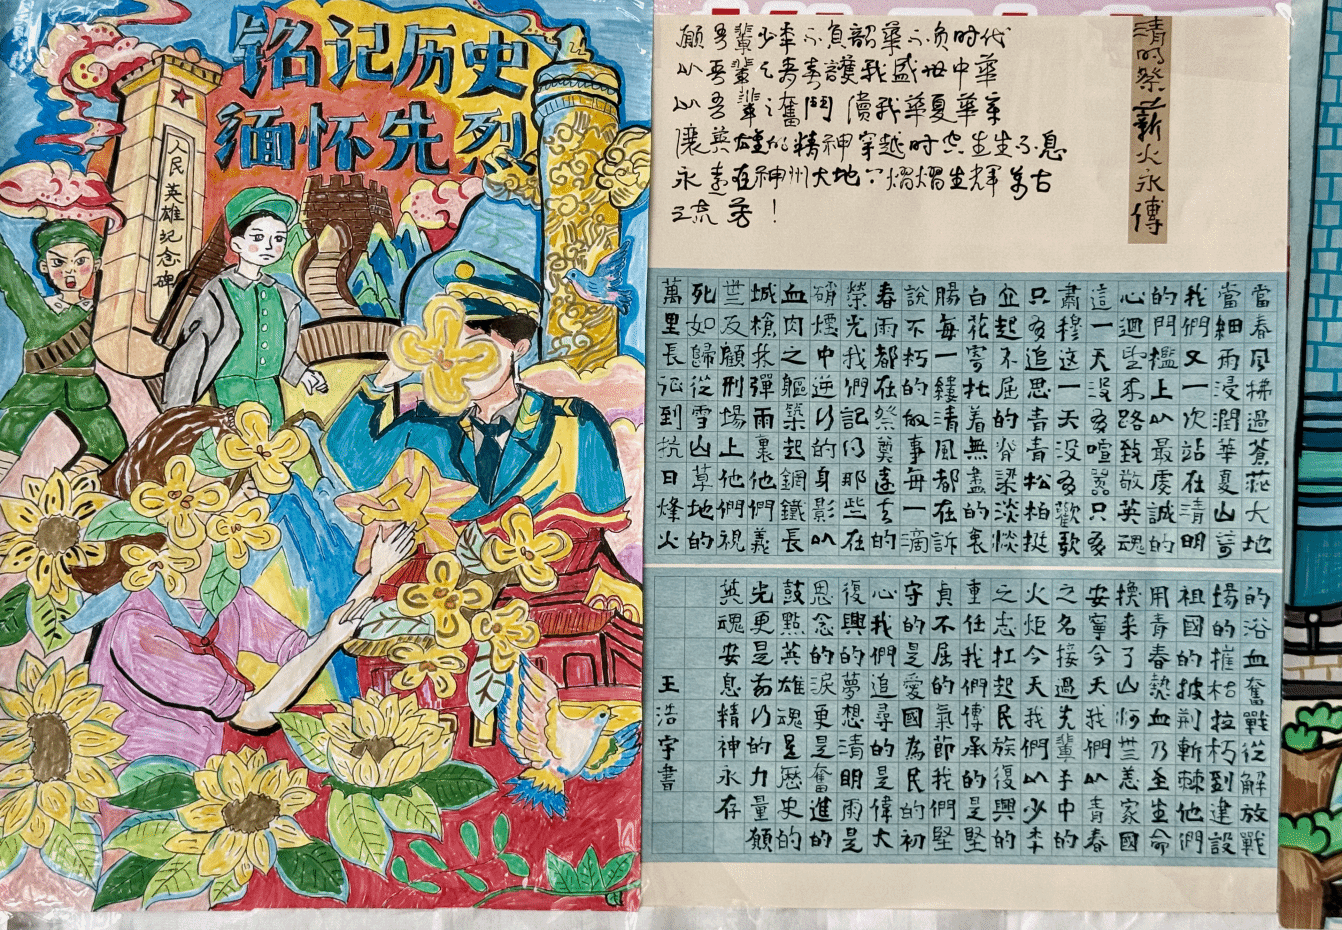 铭记历史
缅怀先烈
人民英雄纪念碑
清明祭薪火永傳
願吾輩少年不負韶華不负时代
以吾輩之青春護我盛世中華
以吾輩之奮鬥 償我華夏華章
讓英雄的精神穿越时空生生不息
永遠在神州大地上熠熠生輝萬古
流芳！
當春風拂過蒼茫大地
當細雨浸潤華夏山河
我們又一次站在清明
的門檻上以最虔誠的
心迴望來路致敬英魂
這一天没有喧囂只有
肅穆这一天没有歡歌
只有追思青青松柏挺
立起不屈的脊梁淡淡
白花寄托着無盡的哀
腸每一縷清風都在訴
說不朽的故事每一滴
春雨都在祭奠遠去的
榮光我們記得那些在
硝煙中逆行的身影以
血肉之軀築起鋼鐵長
城槍林彈雨裏他們義
無反顧刑場上他們視
死如歸從雪山草地的
萬里長征到抗日烽火
的浴血奮戰從解放戰
場的摧枯拉朽到建設
祖國的披荊斬棘他們
用青春熱血乃至生命
換來了山河無恙家國
安寧今天我們以青春
之名接過先輩手中的
火炬今天我們以少年
之志扛起民族復興的
重任我們傳承的是堅
貞不屈的氣節我們堅
守的是愛國為民的初
心我們追尋的是偉大
復興的夢想清明雨是
思念的淚更是奮進的
鼓點英雄魂是歷史的
光更是前行的力量願
英魂安息精神永存
王浩宇書